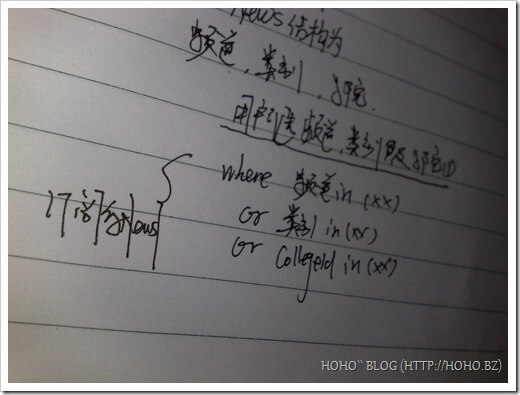 News结构为
频道, 类别, 学院.
用户订阅频道, 类别及学院ID
where 频道 in (xx)
or 类别 in (xx)
or Collegeid in (xx)
News
HOHO`` BLOG (HTTP://HOHO.BZ)